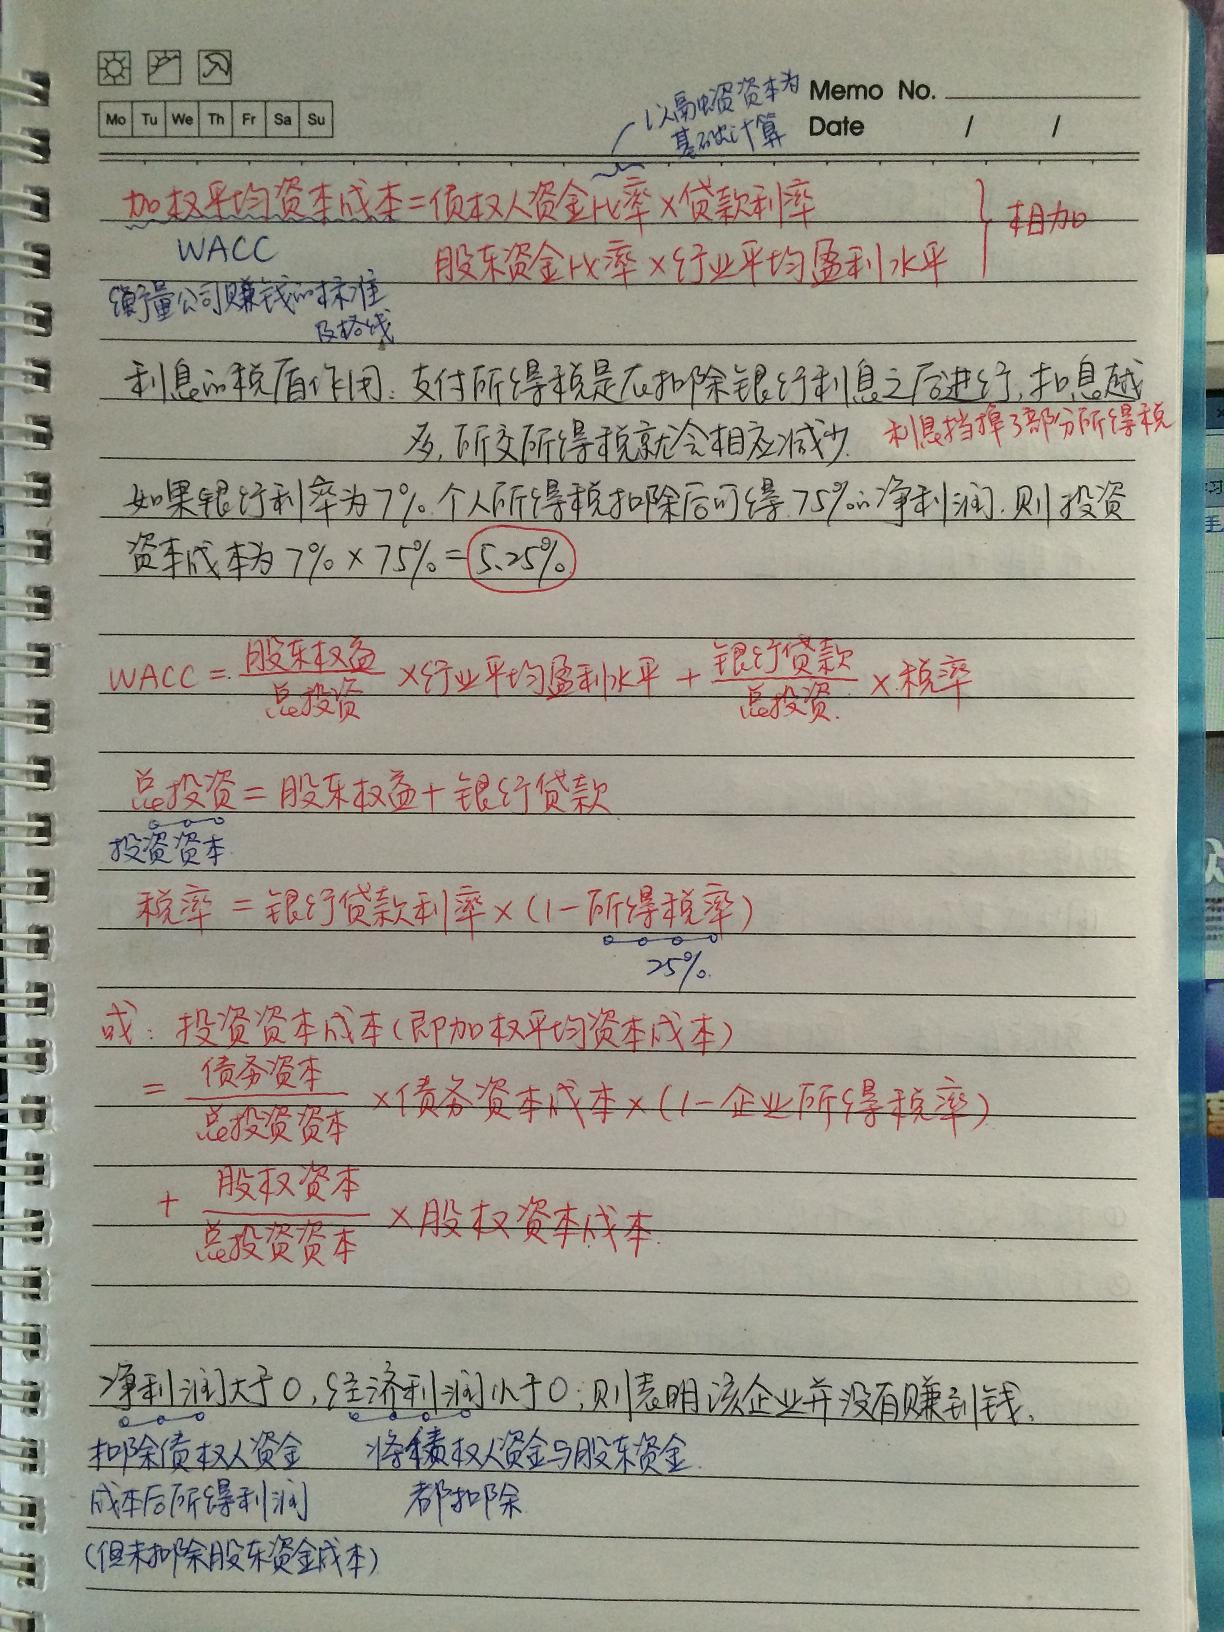 以融资资本为
基础计算
Memo No.
Date / /
Mo Tu We Th Fr Sa Su
加权平均资本成本=债权人资金比率×贷款利率
相加
WACC
股东资金比率×行业平均盈利水平
衡量公司赚钱的标准
及格线
利息的税盾作用:支付所得税是在扣除银行利息之后进行,扣息越
多,所交所得税就会相应减少.
利息挡掉了部分所得税
如果银行利率为7%.个人所得税扣除后可得75%的净利润.则投资
资本成本为7%×75%=5.25%
WACC=股东权益/总投资×行业平均盈利水平+银行贷款/总投资×税率
总投资=股东权益+银行贷款
投资资本
税率=银行贷款利率×(1-所得税率)
25%.
或:投资资本成本(即加权平均资本成本)
=债务资本/总投资资本×债务资本成本×(1-企业所得税率)
+股权资本/总投资资本×股权资本成本.
净利润大于0,经济利润小于0;则表明该企业并没有赚到钱.
扣除债权人资金 将债权人资金与股东资金
成本后所得利润 都扣除
(但未扣除股东资金成本)